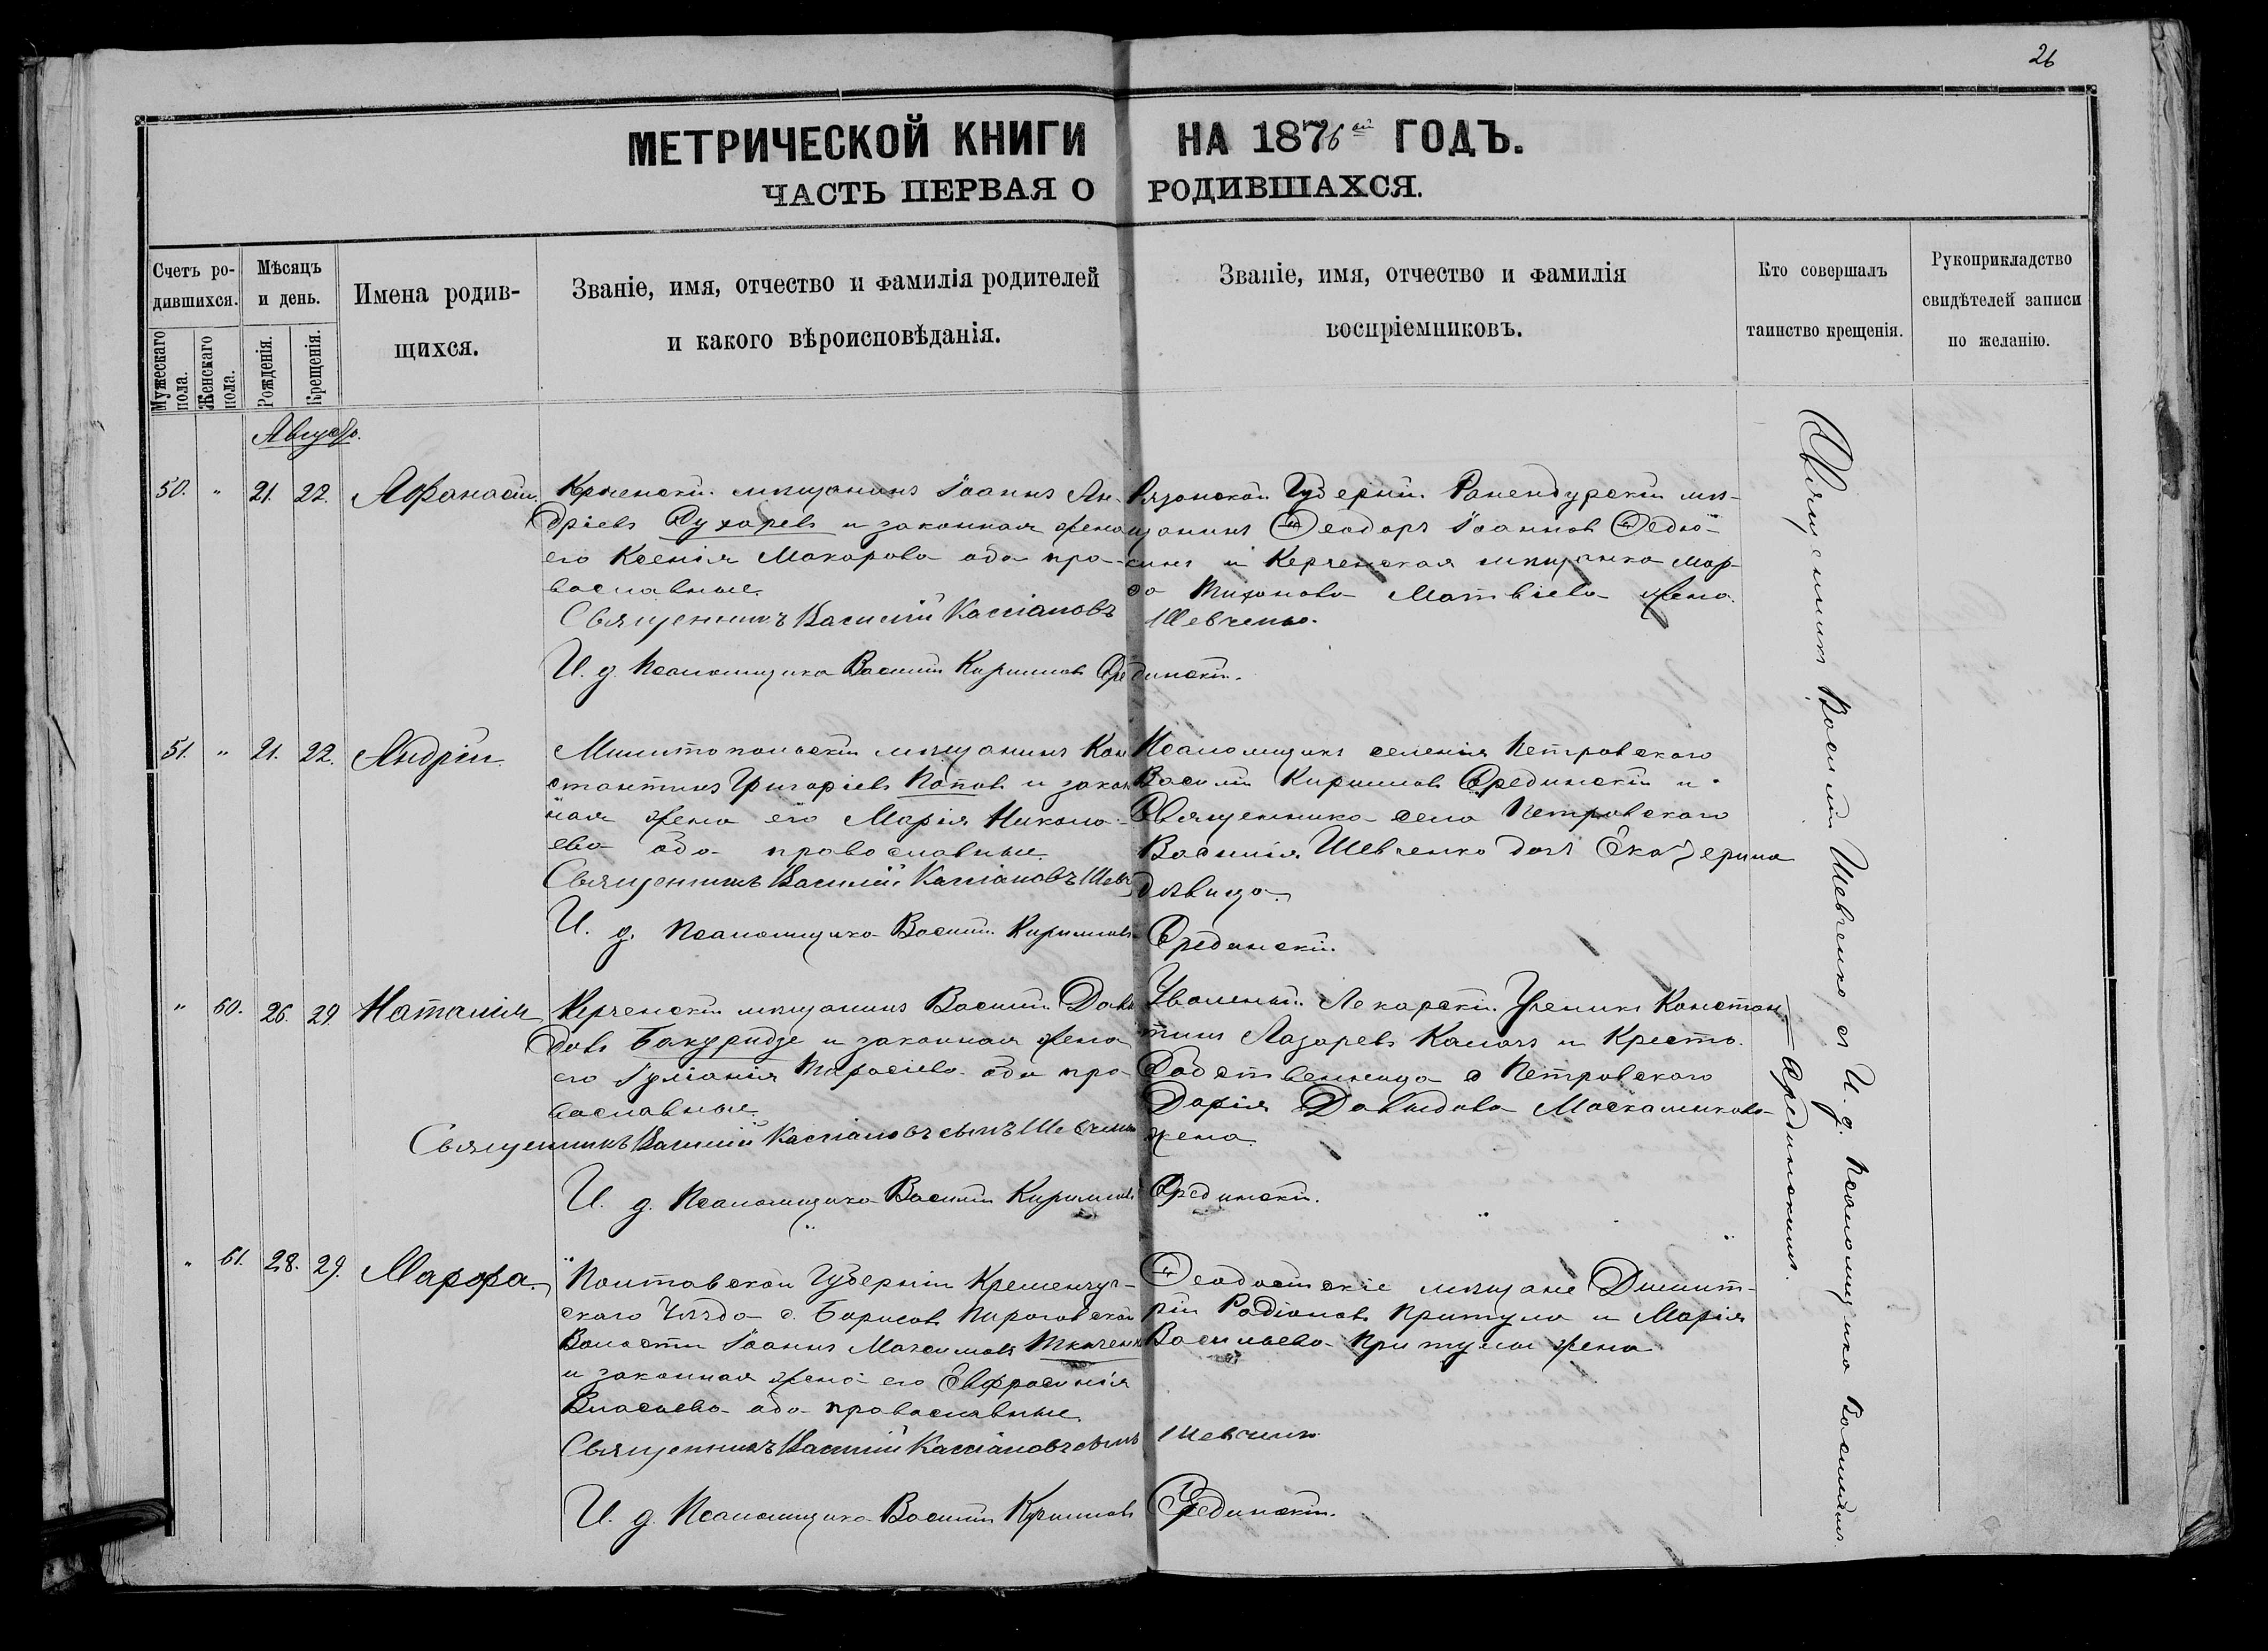 26
МЕТРИЧЕСКОЙ КНИГИ НА 1876ый ГОДЪ.
ЧАСТЬ ПЕРВАЯ О РОДИВШАХСЯ.
Счетъ ро-
дившихся.
Мужескаго пола.
Женскаго пола.
Мѣсяцъ
и день.
Рожденія.
Крещенія.
Имена родив-
щихся.
Званіе, имя, отчество и фамилія родителей
и какого вѣроисповѣданія.
Званіе, имя, отчество и фамилія
воспріемниковъ.
Кто совершалъ
таинство крещенія.
Рукоприкладство
свидѣтелей записи
по желанію.
Августъ.
50. " 21. 22. Афанасій.
Керченскій мѣщанинъ Іоаннъ Ан-
дріевъ Сухаревъ и законная жена
его Ксенія Макарова оба пра-
вославные.
Священникъ Василій Кассіановъ Шевченко.
И. д. Псаломщика Василій Кириловъ Срединскій.
Рязонской Губерніи Раненбургскій мѣ-
щанинъ Ѳеодоръ Іоанновъ Ѳедю-
синъ и Керченская мѣщанка Мар-
ѳа Тихонова Матвіева жена.
51. " 21. 22. Андрей.
Милитопольскій мѣщанинъ Кон
стантинъ Григоріевъ Поповъ и закон
ная жена его Марія Никола-
ева оба православные.
Священникъ Василій Кассіановъ Шевч
И. д. Псаломщика Василій Кириловъ Срединскій.
Псаломщикъ селенія Петровскаго
Василій Кириловъ Срединскій и
Священника села Петровскаго
Василія Шевченко дочь Екатерина
дѣвица.
" 60. 26. 29. Наталія
Керченскій мѣщанинъ Василій Давы
довъ Бакуридзе и законная жена
его Іуліанія Тарасіева оба пра-
вославные.
Священникъ Василій Кассіановъ сынъ Шевченко
И. д. Псаломщика Василій Кириловъ Срединскій.
Уволеный Лекарскій Ученикъ Констан-
тинъ Лазаревъ и Кресто-
Петровскаго
Дарія Давыдова
жена.
" 61. 28. 29. Марѳа.
Полтавской Губерніи Кременчуг-
скаго Уѣзда с. Борисовъ Пироговской
Волости Іоаннъ Максимовъ Ткаченко
и законная жена его Евфросинія
Власиева оба православные.
Священникъ Василій Кассіановъ сынъ Шевченко
И. д. Псаломщика Василій Кириловъ Срединскій.
Ѳеодосійскіе мѣщане Димит-
рій Родіоновъ Притула и Марія
Васильева Притулы жена
Священникъ Василій Шевченко съ И. д. Псаломщика Василіемъ
Срединскимъ.